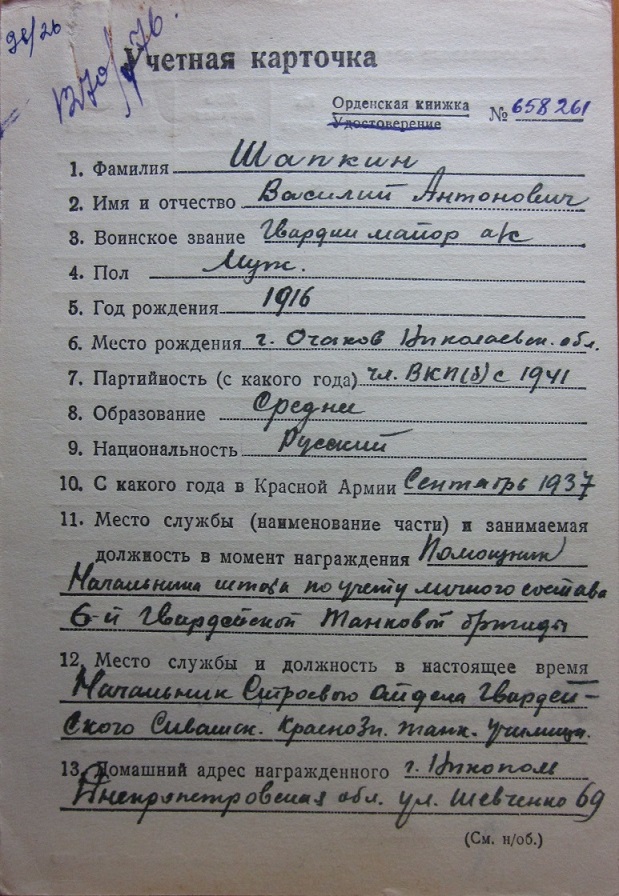 Учетная карточка
Орденская книжка
Удостоверение № 658261
1. Фамилия Шапкин
2. Имя и отчество Василий Антонович
3. Воинское звание Гвардии майор а/с
4. Пол Муж.
5. Год рождения 1916
6. Место рождения г. Очаков Николаевск. обл.
7. Партийность (с какого года) чл. ВКП(б) с 1941
8. Образование Средне
9. Национальность Русский
10. С какого года в Красной Армии Сентябрь 1937
11. Место службы (наименование части) и занимаемая
должность в момент награждения Помощник
Начальника штаба по учету личного состава
6-й Гвардейской Танковой бригады
12. Место службы и должность в настоящее время
Начальник Строевого отдела Гвардей-
ского Сивашск. Краснозн. танк. училища.
13. Домашний адрес награжденного г. Никополь
Днепропетровская обл. ул. Шевченко 69
(См. н/об.)